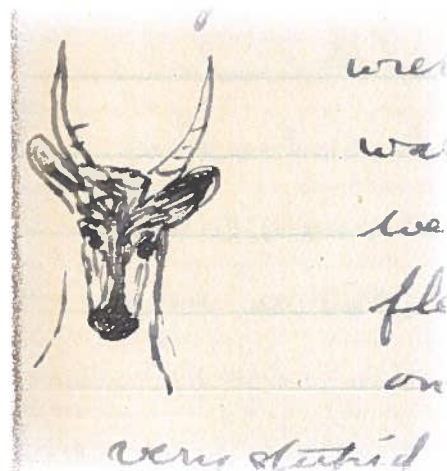 wre
wa
we
fle
on
very stupid